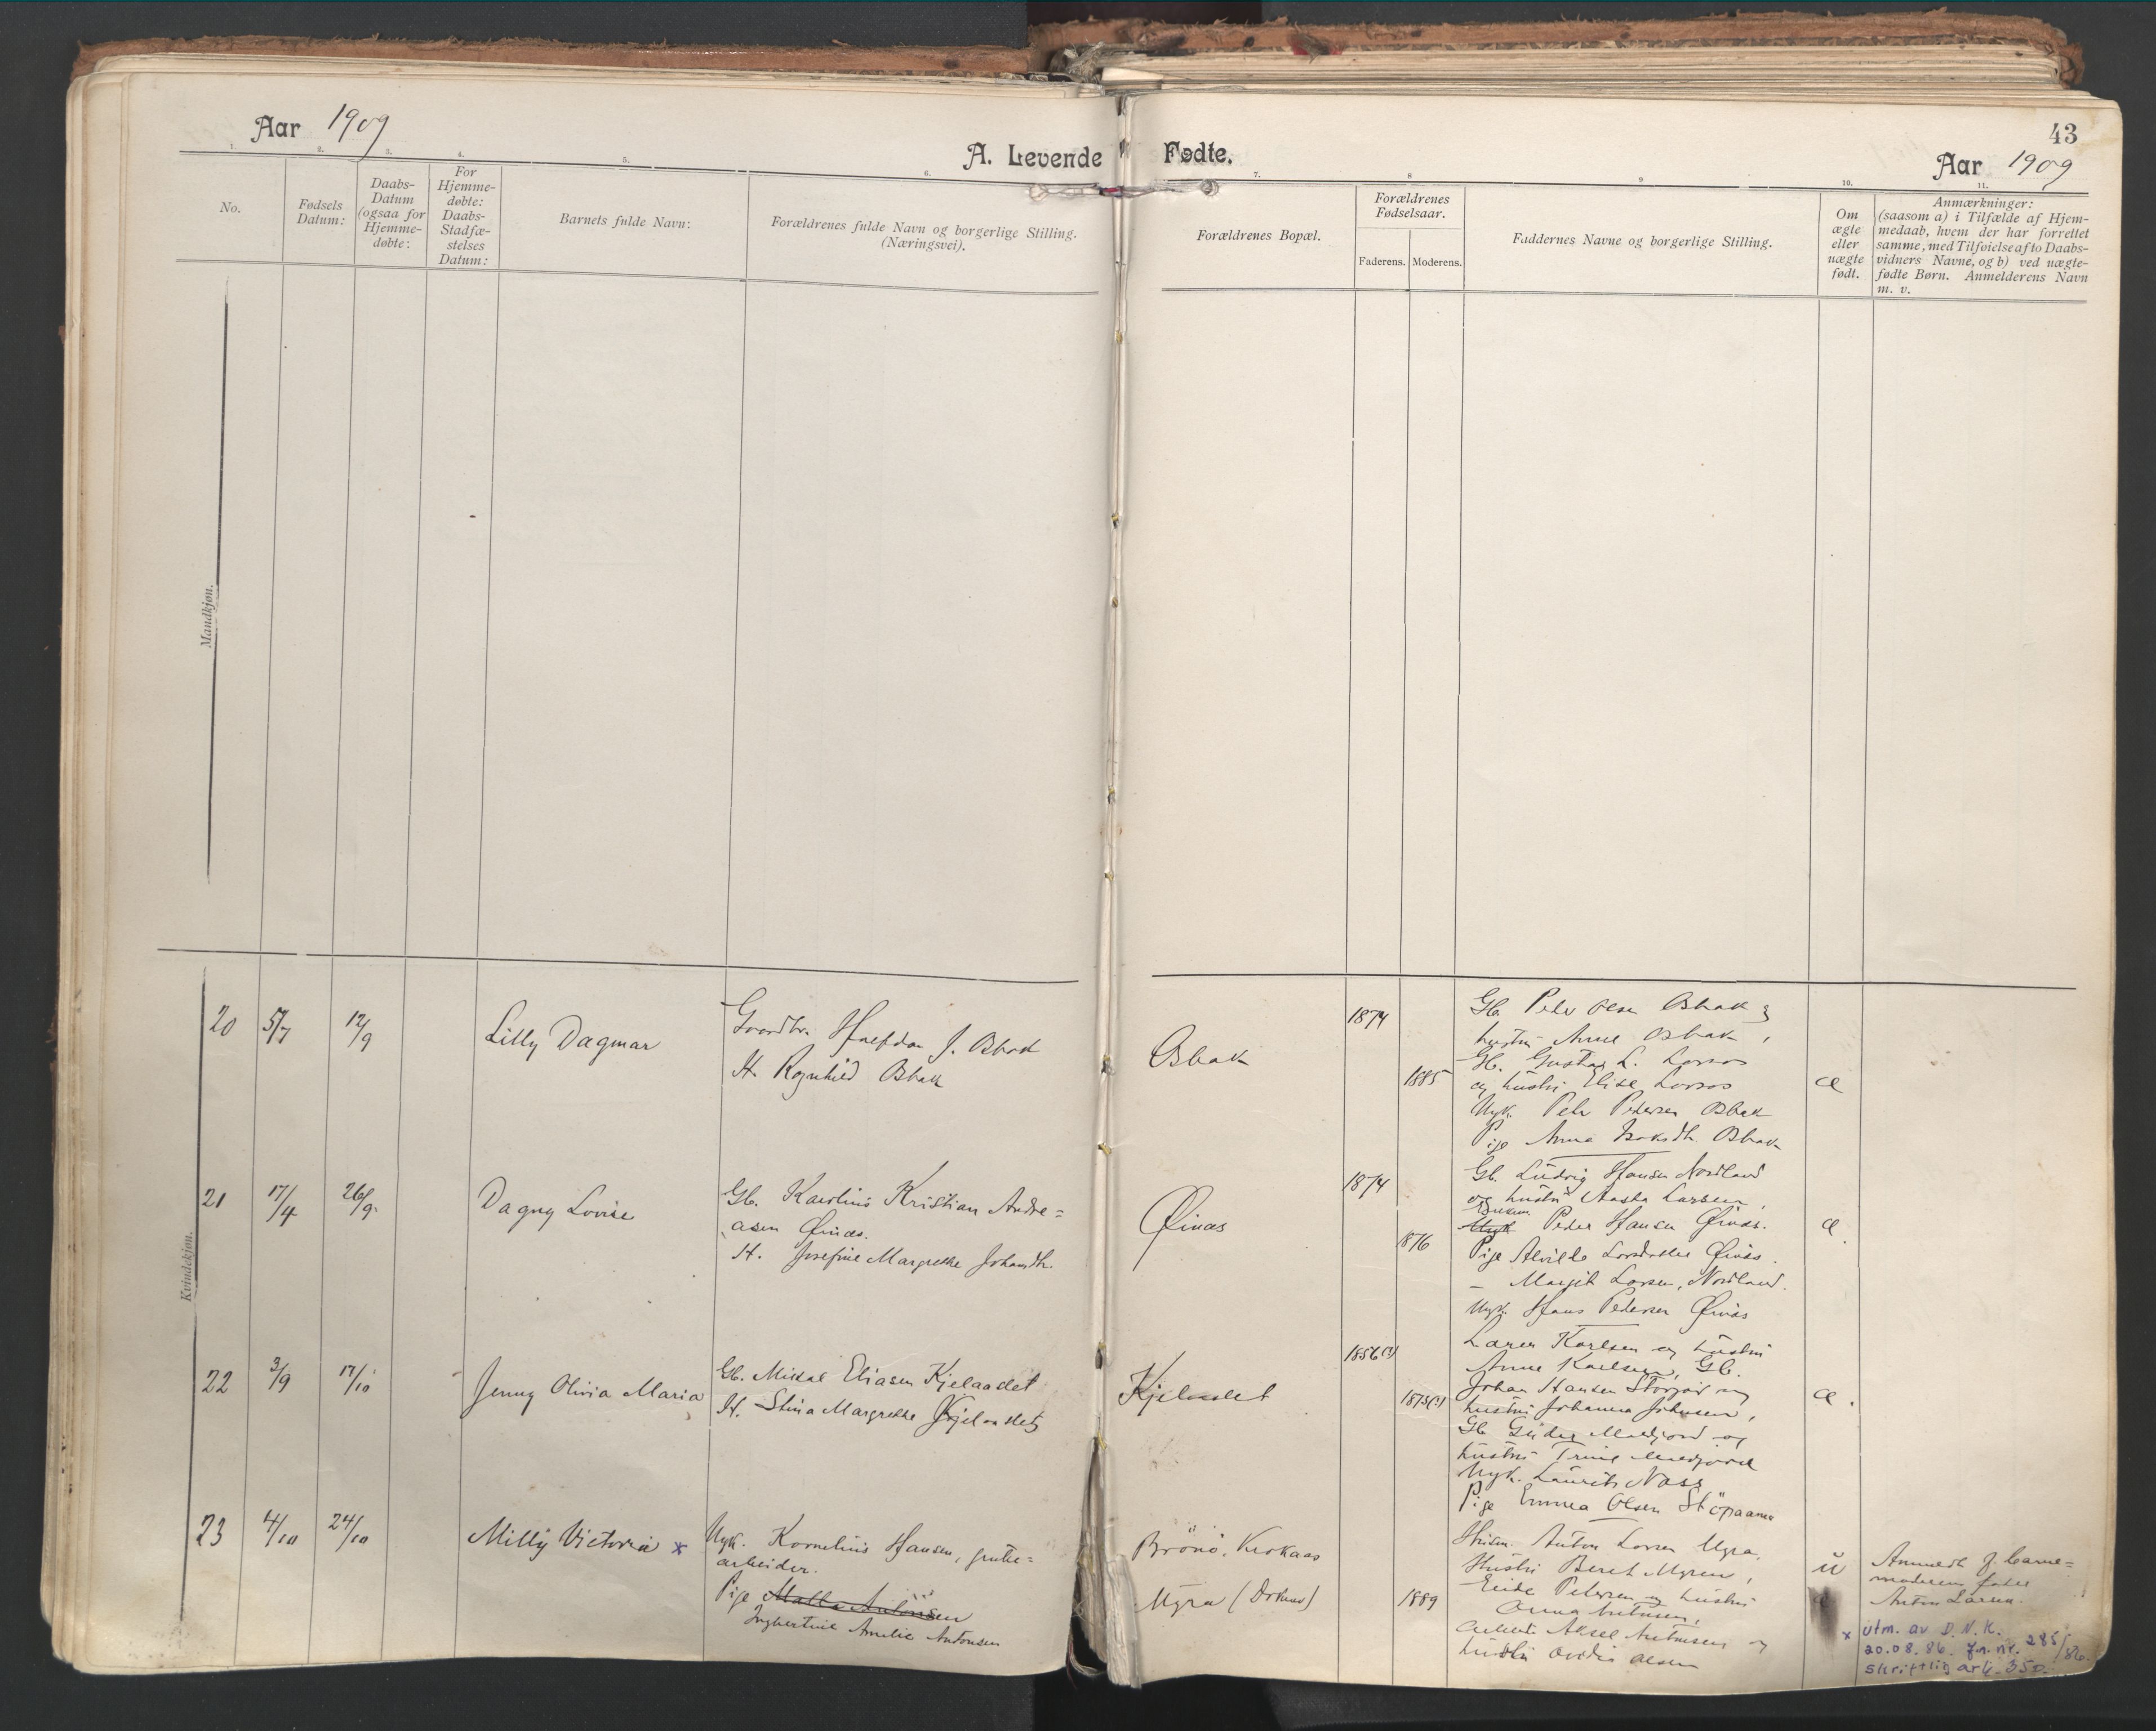 Aar 1909
A. Levende Fødte.
43
Aar 1909
1. 2. 3. 4. 5. 6. 7. 8 9 10. 11.
No.
Fødsels
Datum:
Daabs-
Datum
(ogsaa for
Hjemme-
døbte:
For
Hjemme-
døbte:
Daabs-
Stadfæ-
stelses
Datum:
Barnets fulde Navn:
Forældrenes fulde Navn og borgerlige Stilling.
(Næringsvei).
Forældrenes Bopæl.
Forældrenes
Fødselsaar.
Faderens. Moderens.
Faddernes Navne og borgerlige Stilling.
Om
ægte
eller
uægte
født.
Anmærkninger:
(saasom a) i Tilfælde af Hjem-
medaab, hvem der har forrettet
samme, med Tilføielse af to Daabs-
vidners Navne, og b) ved uægte-
fødte Børn. Anmelderens Navn
m. v.
Mandkjøn.
Kvindekjøn.
20
5/7
12/9
Lilly Dagmar
Gaardbr. Halfdan J. Osbak
H. Ragnhild Osbak
Osbak
1874
1885
Gb. Peder Olsen Osbak og
hustru Anne Osbak,
Gb. Gustav L.
og hustru Elise
Ugk. Peder Pedersen Osbak
Pige Anna Isaksdtr. Osbak
æ
21
17/4
26/9
Dagny Lovise
Gb. Karolius Kristian Andre=
asen Øinæs.
H. Josefine Margrethe Johansdtr.
Øinæs
1874
1876
Gb. Ludvig Hansen Nordland
og hustru Aasta Larsen,
Ugk Peder Hansen Øinæs.
Pige Alvilde Øinæs.
— Margit Larsen, Nordland.
Ugk. Hans Pedersen Øinæs
æ.
22
3/9
17/10
Jenny Olivia Maria
Gb. Mikal Eliasen Kjelaadet
H. Stina Margrethe Kjelaadet
Kjelaadet
1856(?)
1873(?)
Karlsen og hustru
Anne Karlsen, Gb.
Johan Hansen Storjord og
hustru Johanna Johnsen,
Gb.
hustru Trine
Ugk. Laurits
Pige Emma Olsen
æ.
23
4/10
24/10
Milly Victoria x
Ugk. Kornelius Hansen, grube=
arbeider.
Pige Malla Antonsen
Ingbertine Amelie Antonsen
Brønø, Krokaas
Myra
1889
Husm. Anton Larsen Myra,
Hustru Beret Myren,
Pedersen og hustru
Anna Antonsen,
Aksel Antonsen og
hustru Ovidia Olsen
u
Anmeldt af barne=
moderens fader
Anton Larsen.
x utm. av D.N.K.
20.08.86. jn.nr. 285/86.
skriftlig ark. 350.